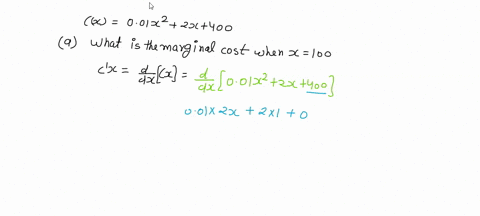 C(x) = 0.01x² + 2x + 400
(a) What is the marginal cost when x = 100
c'x = d/dx [(x] = d/dx [0.01x² + 2x + 400]
0.01 × 2x + 2×1 + 0